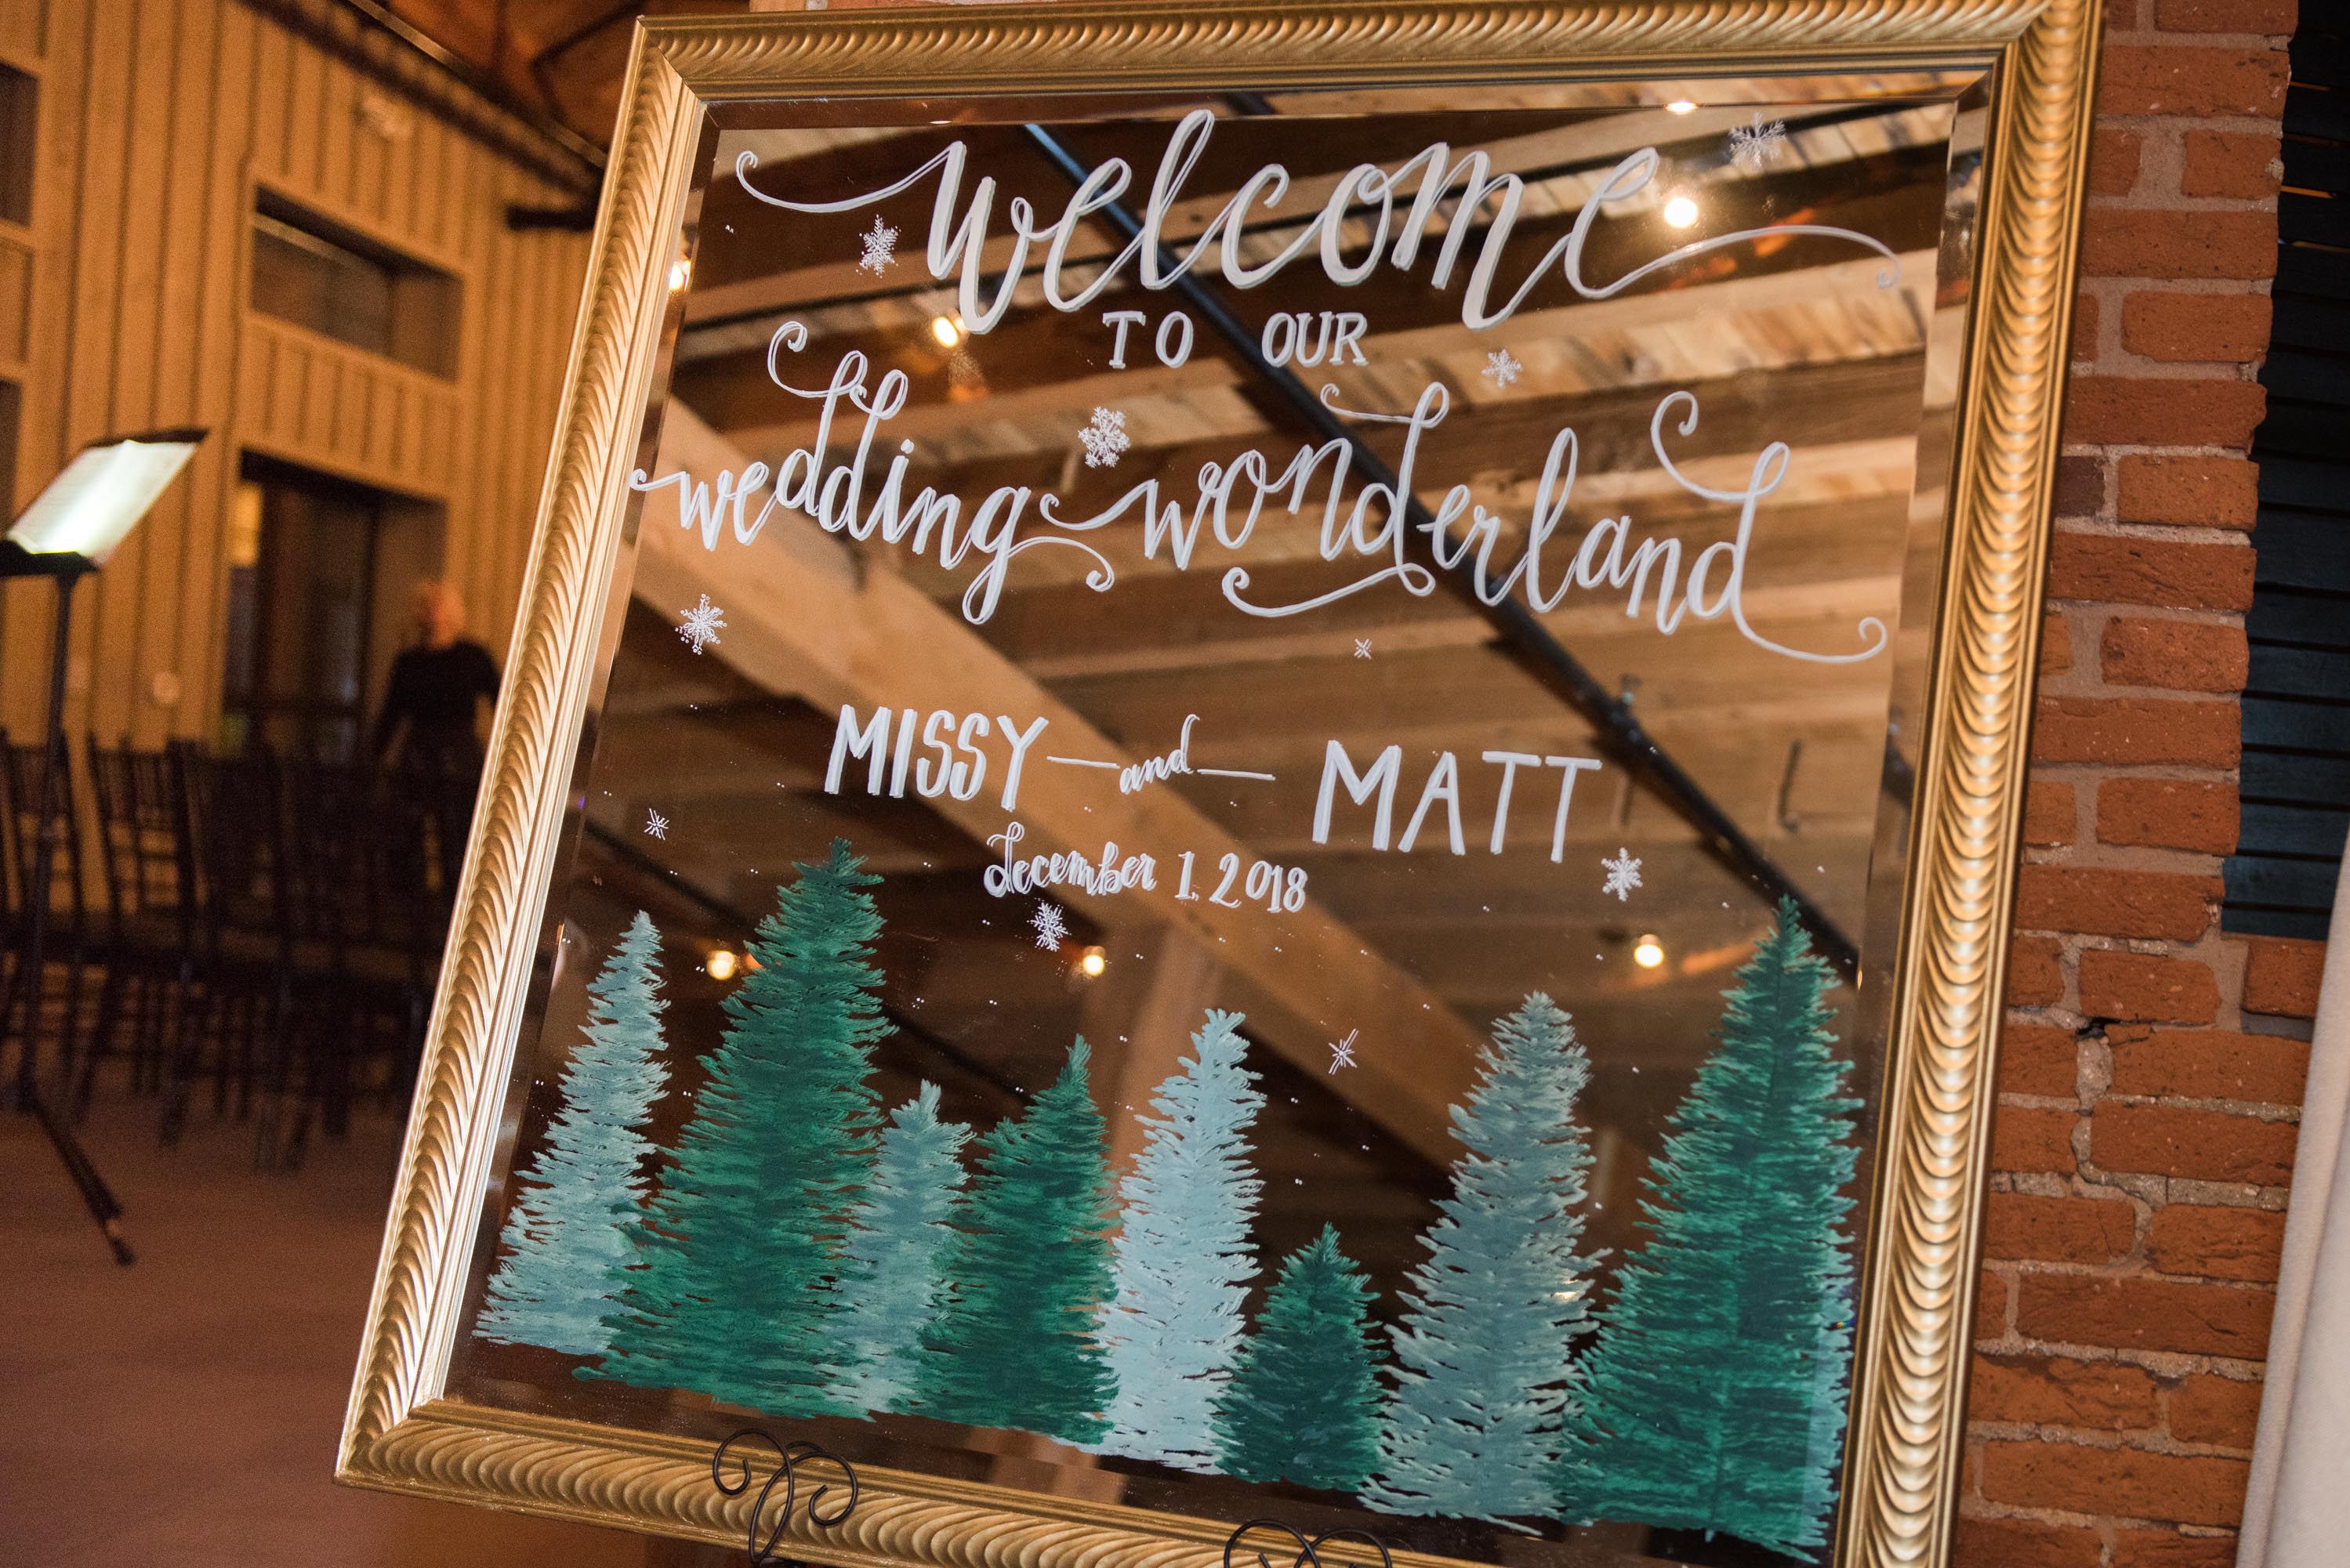 welcome
TO OUR
wedding wonderland
MISSY and MATT
december 1, 2018